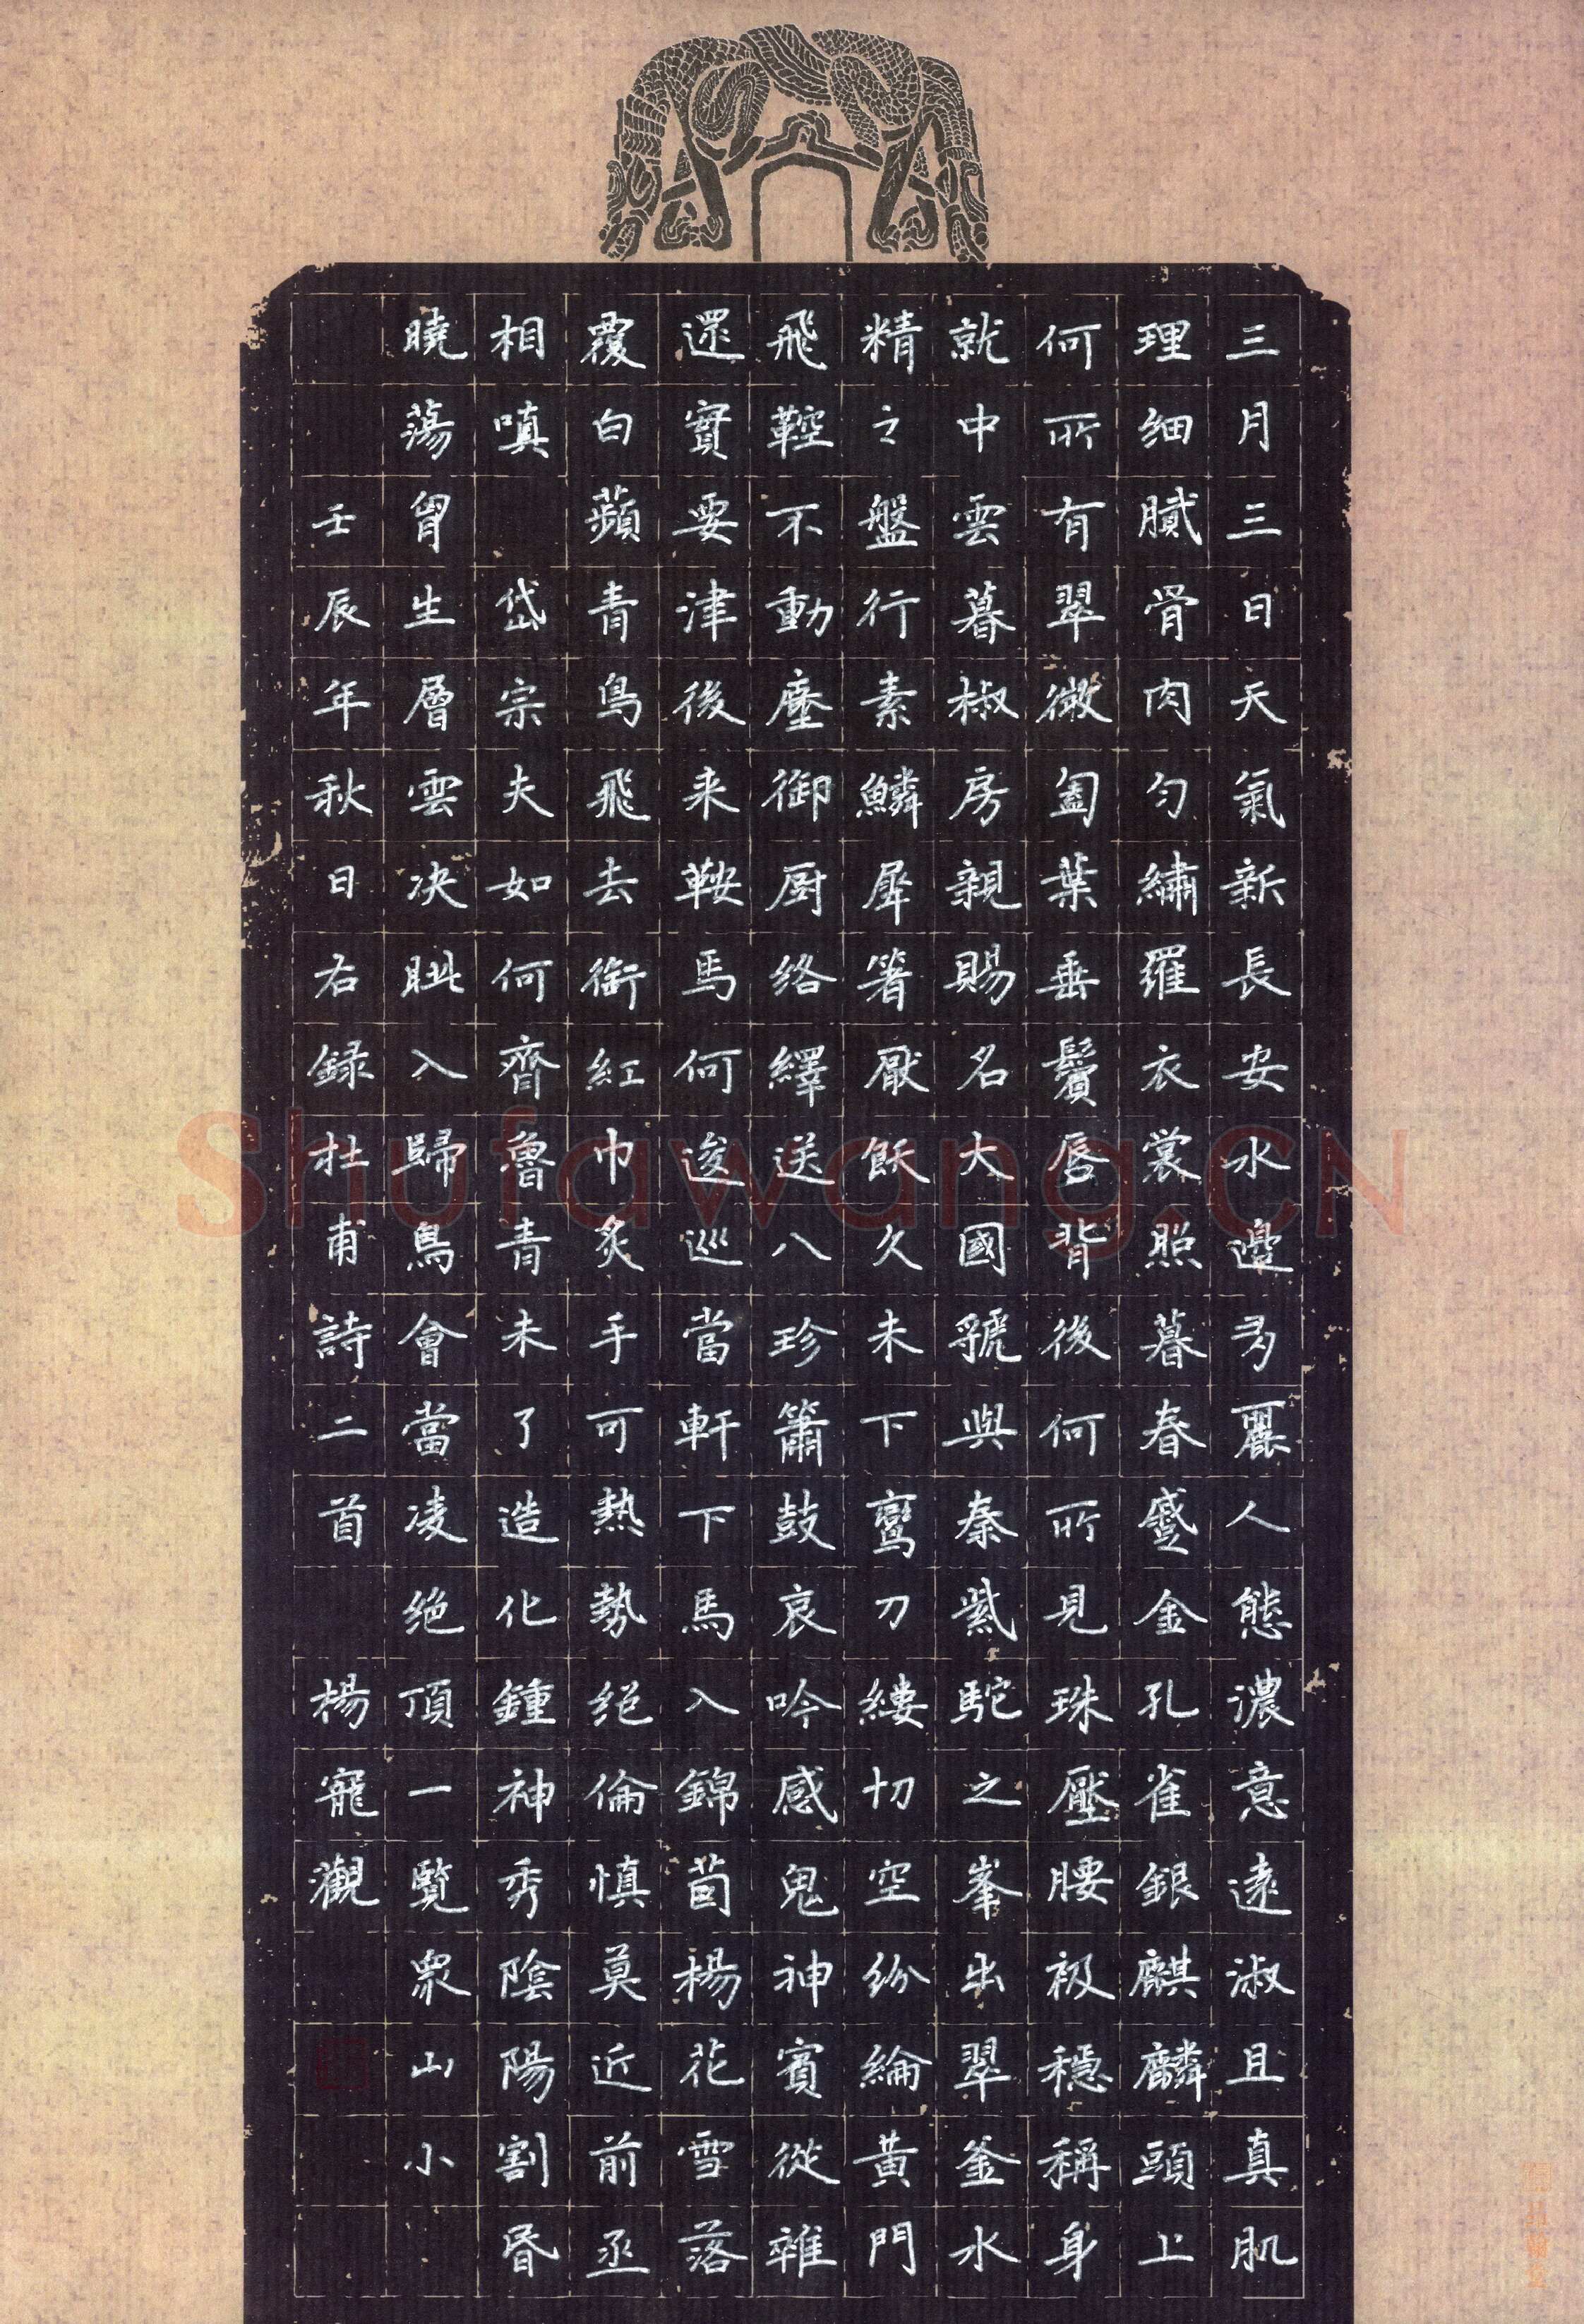 三月三日天氣新長安水邊多麗人態濃意遠淑且真肌
理細膩骨肉勻繡羅衣裳照暮春蹙金孔雀銀麒麟頭上
何所有翠微㔩葉垂鬢唇背後何所見珠壓腰衱穩稱身
就中雲暮椒房親賜名大國虢與秦紫駝之峯出翠釜水
精之盤行素鱗犀箸厭飫久未下鸞刀縷切空紛綸黃門
飛鞚不動塵御厨絡繹送八珍簫鼓哀吟感鬼神賓從雜
還實要津後来鞍馬何逡巡當軒下馬入錦茵楊花雪落
覆白蘋青鳥飛去銜紅巾炙手可熱勢絕倫慎莫近前丞
相嗔 岱宗夫如何齊魯青未了造化鍾神秀陰陽割昏
曉蕩胷生層雲决眦入歸鳥會當凌絕頂一覽衆山小
壬辰年秋日右録杜甫詩二首 楊寵觀
Shufawang.CN